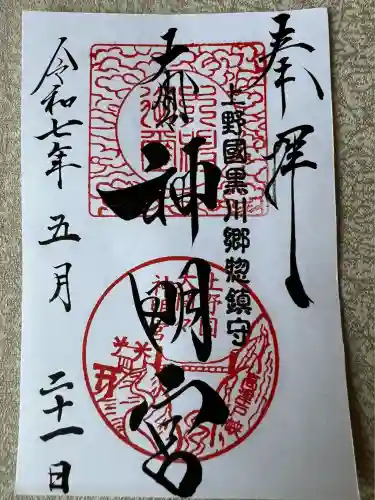 奉拝
上野國黒川郷惣鎮守
大間々
神明宮
令和七年 五月 二十一日